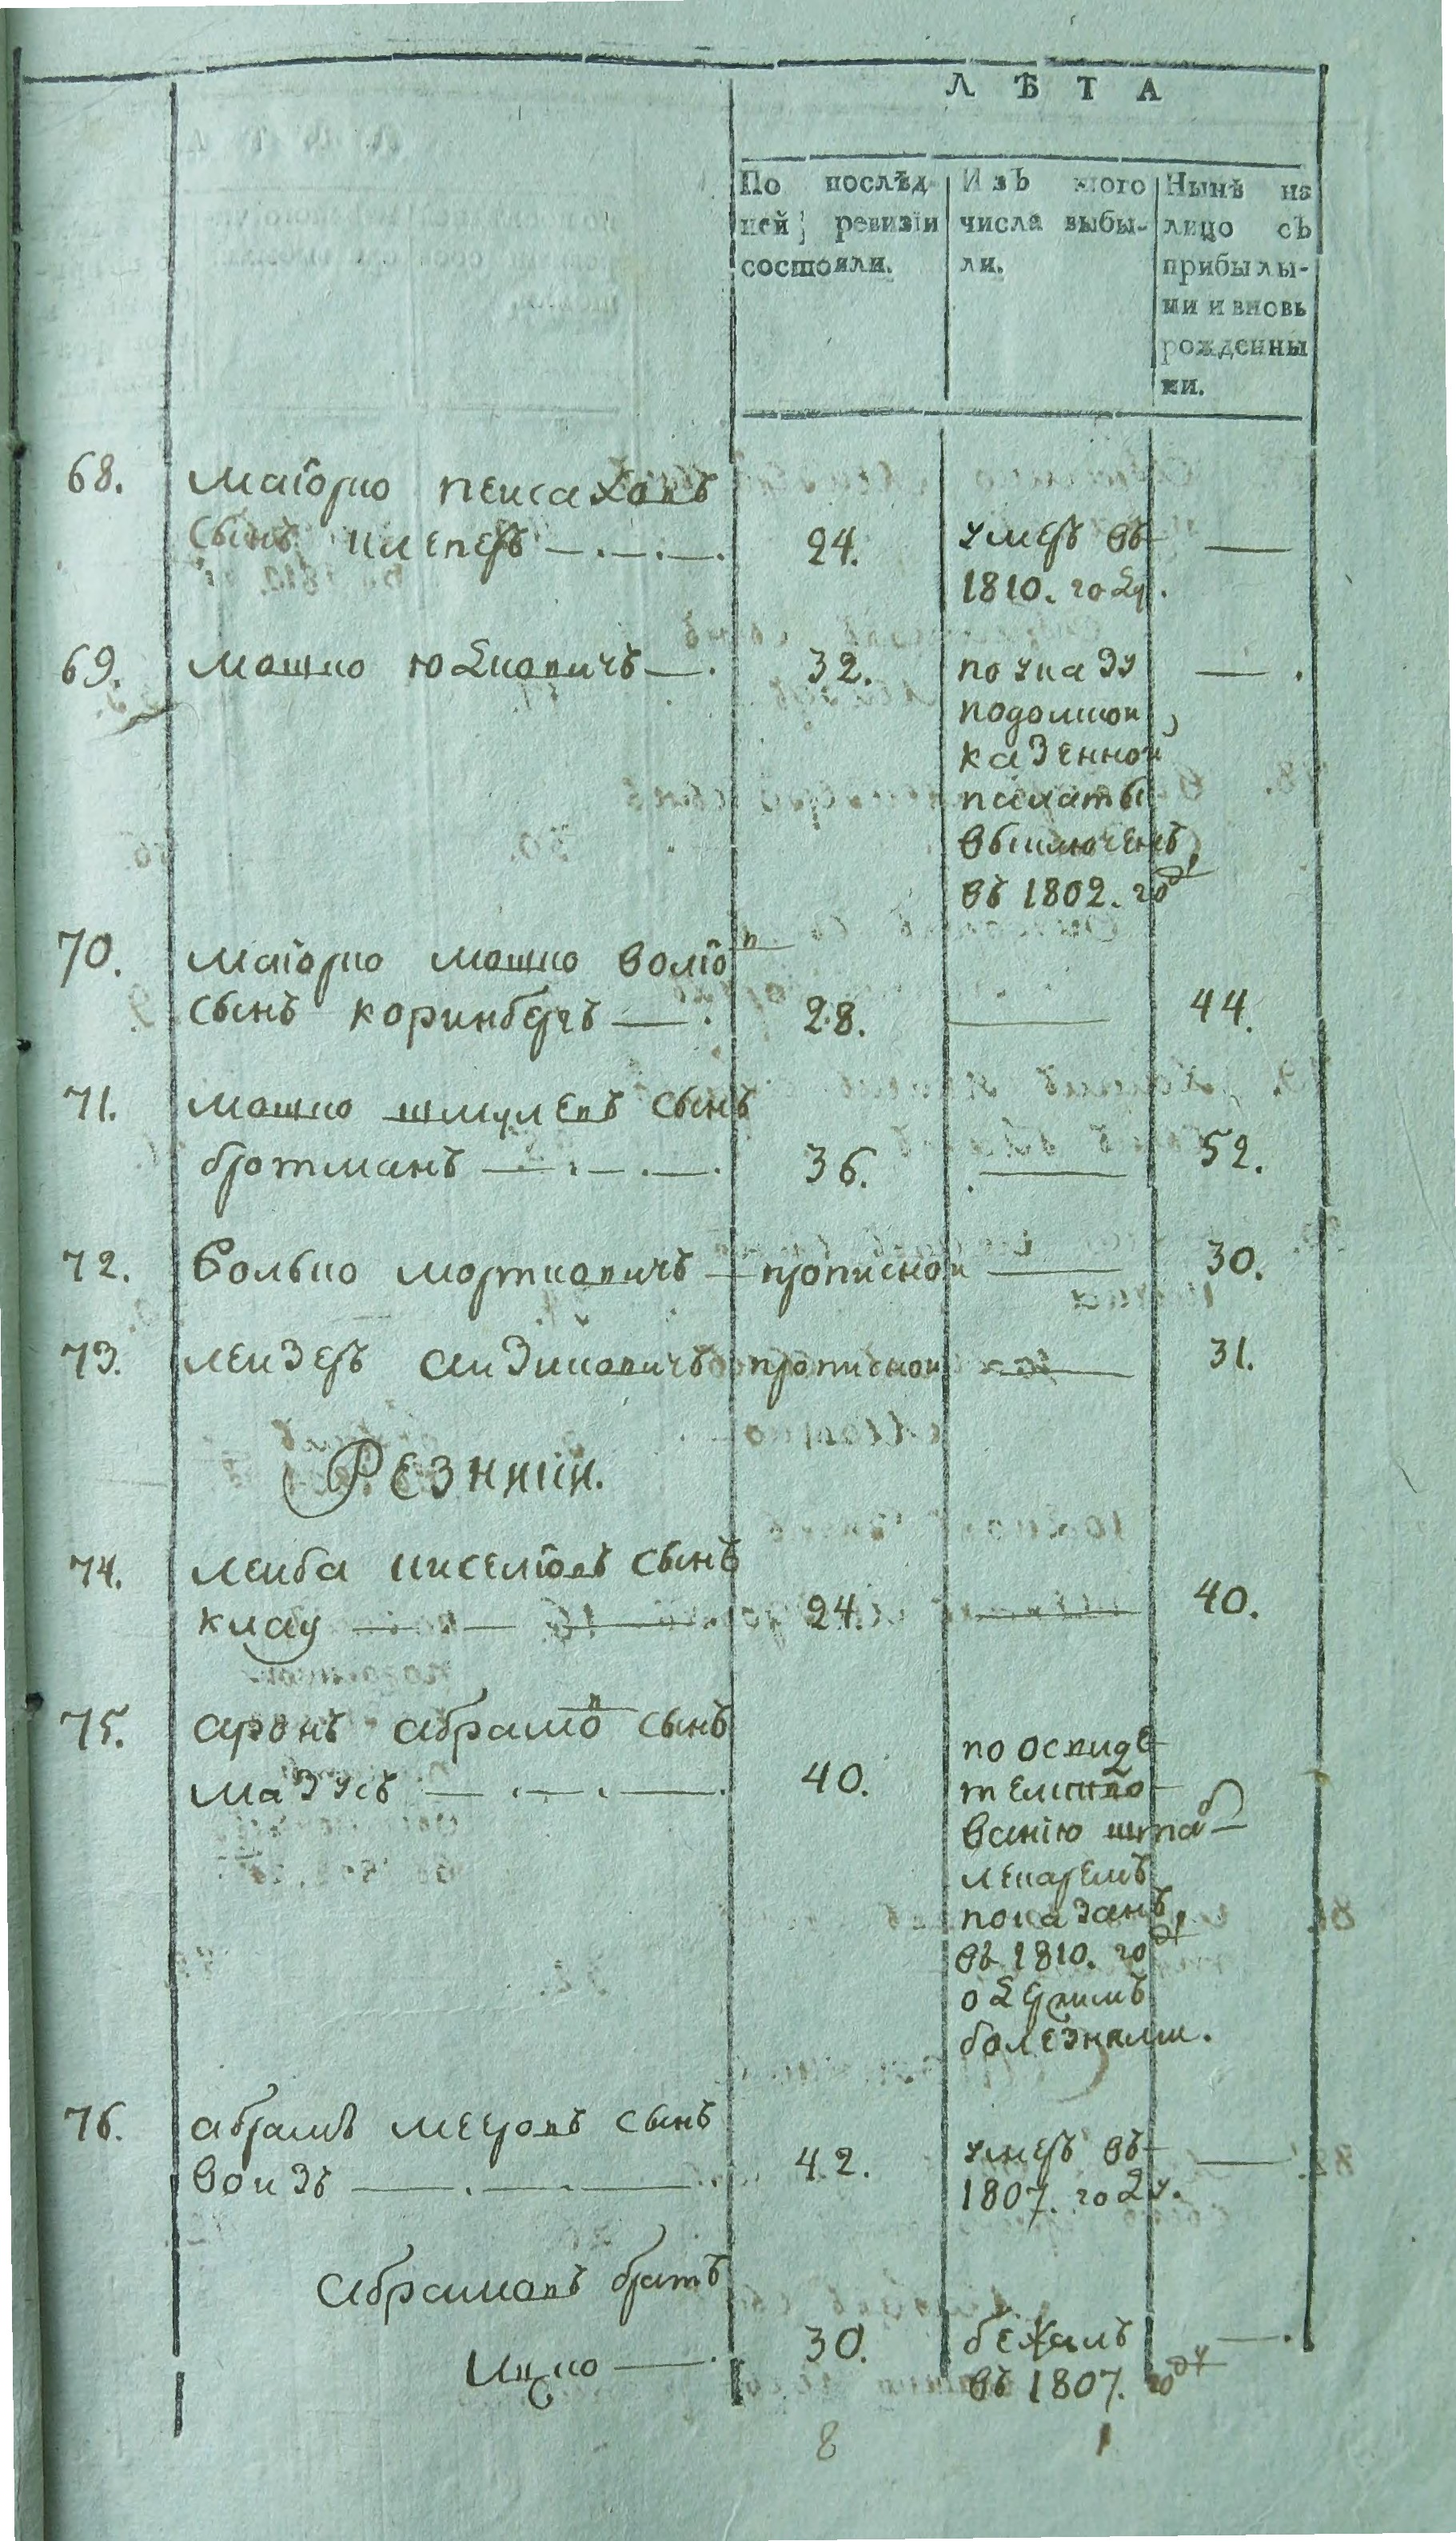 ЛѢТА
По послѣд-
ней ревизіи
состояли.
Изъ того
числа выбы-
ли.
Нынѣ на
лицо съ
прибылы-
ми и вновь
рожденны
ми.
68. Маіорко Пейсаховъ
сынъ клеперъ — . — . — . 24. умеръ въ —
1810. году.
69. Мошко Юдковичъ — . 32. по указу — .
подолской
казенной
палаты
выключенъ
въ 1802. году
70. Маіорко Мошко Воліовъ
сынъ коринберъ — . 28. — 44.
71. Мошко Шмулевъ сынъ
бротманъ — . — . — . 36. — 52.
72. Волько Мортковичъ — прописной — 30.
73. Лейзеръ Айзиковичъ прописной — 31.
Резники.
74. Лейба Киселіовъ сынъ
клау — — — 24. — 40.
75. Аронъ Абрамовъ сынъ
Мазусъ — . — . — . 40. по освиде
телство
ванію штаб
лекаремъ
показанъ
въ 1810. году
одержимъ
болезнями.
76. Абрамъ Мееровъ сынъ
воизъ — . — . — . 42. умеръ въ —
1807. году.
Абрамовъ братъ
Ицко — . 30. бежалъ — .
въ 1807. году
8 1